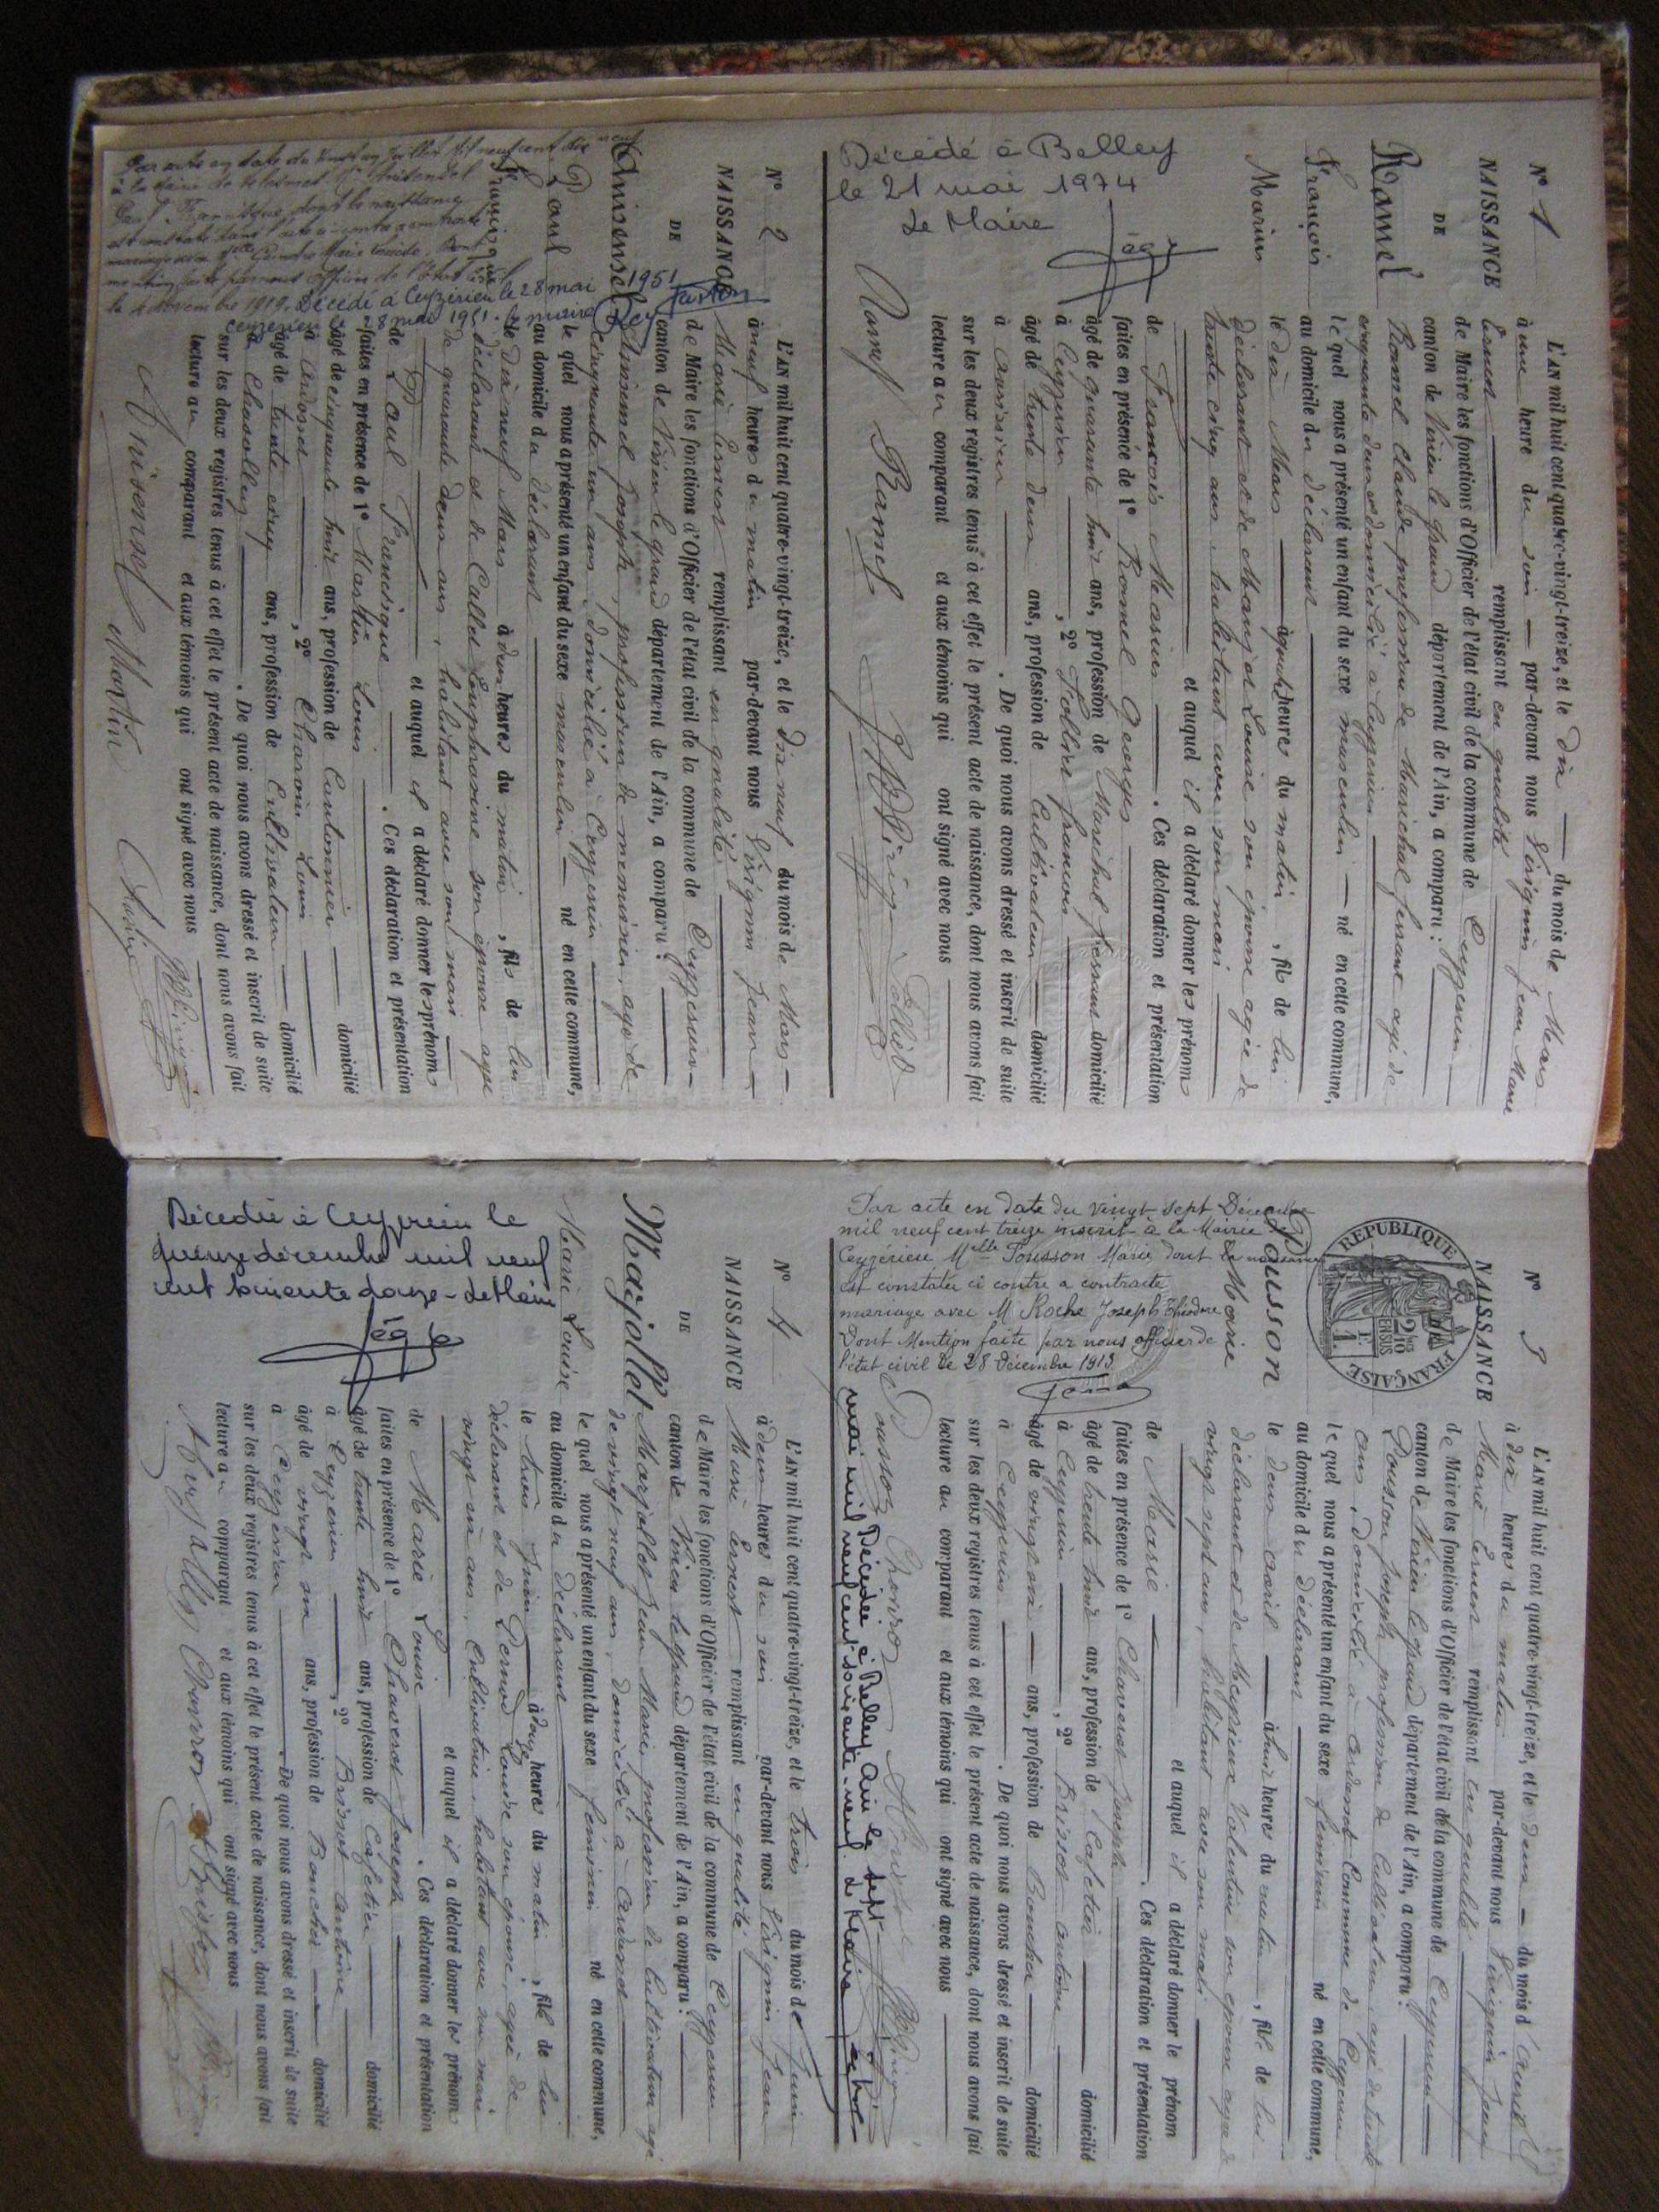 N° 1
NAISSANCE
DE
Ramel
François
Marius
Décédé à Belley
le 21 mai 1974
Le Maire
L'AN mil huit cent quatre-vingt-treize, et le dix du mois de Mars
à une heure du soir par-devant nous Sirignin Jean Marie
Ernest remplissant en qualité
de Maire les fonctions d'Officier de l'état civil de la commune de Ceyzerieu
canton de Virieu le grand département de l'Ain, a comparu :
Ramel Claude profession de Marichal ferrant agé de
cinquante deux domicilié à Ceyzerieu
lequel nous a présenté un enfant du sexe masculin né en cette commune,
au domicile du déclarant
le dix Mars à heures du matin, fils de lui
déclarant et de Manjot Louise son épouse agée de
trente cinq ans habitant avec son mari
et auquel il a déclaré donner les prénoms
de François Marius . Ces déclaration et présentation
faites en présence de 1° Ramel Georges
âgé de quarante huit ans, profession de Marichal ferrant domicilié
à Ceyzerieu , 2° Folliet françois
âgé de trente deux ans, profession de Cultivateur domicilié
à . De quoi nous avons dressé et inscrit de suite
sur les deux registres tenus à cet effet le présent acte de naissance, dont nous avons fait
lecture au comparant et aux témoins qui ont signé avec nous
Ramel Ramel Folliet
N° 2
NAISSANCE
DE
Anisensel
Paul
Francisque
Par acte en date du vingt juillet mil neuf cent dix neuf
à la Mairie de
Paul Francisque dont la naissance
est constatée dans l'acte ci contre a contracté
mariage avec
mention faite par nous Officier de l'état civil
le 4 Novembre 1919. Décédé à Ceyzérieu le 28 mai 1951
Ceyzerieu 28 mai 1951. le maire
L'AN mil huit cent quatre-vingt-treize, et le dix neuf du mois de Mars
à neuf heures du matin par-devant nous Sirignin Jean
Marie Ernest remplissant en qualité
de Maire les fonctions d'Officier de l'état civil de la commune de Ceyzerieu
canton de Virieu le grand département de l'Ain, a comparu :
Anisensel Joseph, profession de menuisier, agé de
cinquante un ans, domicilié à Ceyzerieu
lequel nous a présenté un enfant du sexe masculin né en cette commune,
au domicile du déclarant
le dix neuf Mars à deux heures du matin, fils de lui
déclarant et de Callet Euphrasine son épouse agée
de quarante deux ans, habitant avec son mari
et auquel il a déclaré donner les prénoms
de Paul Francisque . Ces déclaration et présentation
faites en présence de 1° Martin Louis
âgé de cinquante huit ans, profession de Cantonnier domicilié
à Ardosset , 2° Louis
âgé de trente cinq ans, profession de Cultivateur domicilié
à . De quoi nous avons dressé et inscrit de suite
sur les deux registres tenus à cet effet le présent acte de naissance, dont nous avons fait
lecture au comparant et aux témoins qui ont signé avec nous
Anisensel Martin
N° 3
NAISSANCE
DE
Pousson
Marie
REPUBLIQUE FRANÇAISE
2/10 EN SUS
1 F.
Par acte en date du vingt sept Décembre
mil neuf cent treize inscrit à la Mairie de
Ceyzérieu Melle Pousson Marie dont la naissance
est constatée ci contre a contracté
mariage avec M. Roche Joseph Théodore
Dont Mention faite par nous officier de
l'état civil le 28 Décembre 1913
L'AN mil huit cent quatre-vingt-treize, et le deux du mois d'avril
à dix heures du matin par-devant nous Sirignin Jean
Marie Ernest remplissant en qualité
de Maire les fonctions d'Officier de l'état civil de la commune de Ceyzerieu
canton de Virieu le grand département de l'Ain, a comparu :
Pousson Joseph profession de Cultivateur agé de trente
ans, domicilié à Ardosset Commune de Ceyzerieu
lequel nous a présenté un enfant du sexe féminin né en cette commune,
au domicile du déclarant
le deux avril à huit heures du matin, fille de lui
déclarant et de Valentine son épouse agée de
vingt sept ans, habitant avec son mari
et auquel il a déclaré donner le prénom
de Marie . Ces déclaration et présentation
faites en présence de 1° Charveron Joseph
âgé de trente huit ans, profession de Cafetier domicilié
à Ceyzerieu , 2° Brissot antoine
âgé de vingt six ans, profession de Boucher domicilié
à Ceyzerieu . De quoi nous avons dressé et inscrit de suite
sur les deux registres tenus à cet effet le présent acte de naissance, dont nous avons fait
lecture au comparant et aux témoins qui ont signé avec nous
Pousson
Décédée à Belley Ain le sept
mai mil neuf cent soixante-neuf Le Maire
N° 4
NAISSANCE
DE
Marjollet
Marie Louise
Décédée à Ceyzerieu le
quinze décembre mil neuf
cent soixante douze - Le Maire
L'AN mil huit cent quatre-vingt-treize, et le trois du mois de Juin
à deux heures du soir par-devant nous Sirignin Jean
Marie Ernest remplissant en qualité
de Maire les fonctions d'Officier de l'état civil de la commune de Ceyzerieu
canton de Virieu le grand département de l'Ain, a comparu :
Marjollet Jean Marie, profession de Cultivateur agé
de vingt neuf ans, domicilié à Ardosset
lequel nous a présenté un enfant du sexe féminin né en cette commune,
au domicile du déclarant
le trois Juin à heures du matin, fille de lui
déclarant et de Louise son épouse, agée de
vingt six ans, Cultivatrice, habitant avec son mari
et auquel il a déclaré donner les prénoms
de Marie Louise . Ces déclaration et présentation
faites en présence de 1° Charveron Joseph
âgé de trente huit ans, profession de Cafetier domicilié
à Ceyzerieu , 2° Brissot antoine
âgé de vingt six ans, profession de Boucher domicilié
à Ceyzerieu . De quoi nous avons dressé et inscrit de suite
sur les deux registres tenus à cet effet le présent acte de naissance, dont nous avons fait
lecture au comparant et aux témoins qui ont signé avec nous